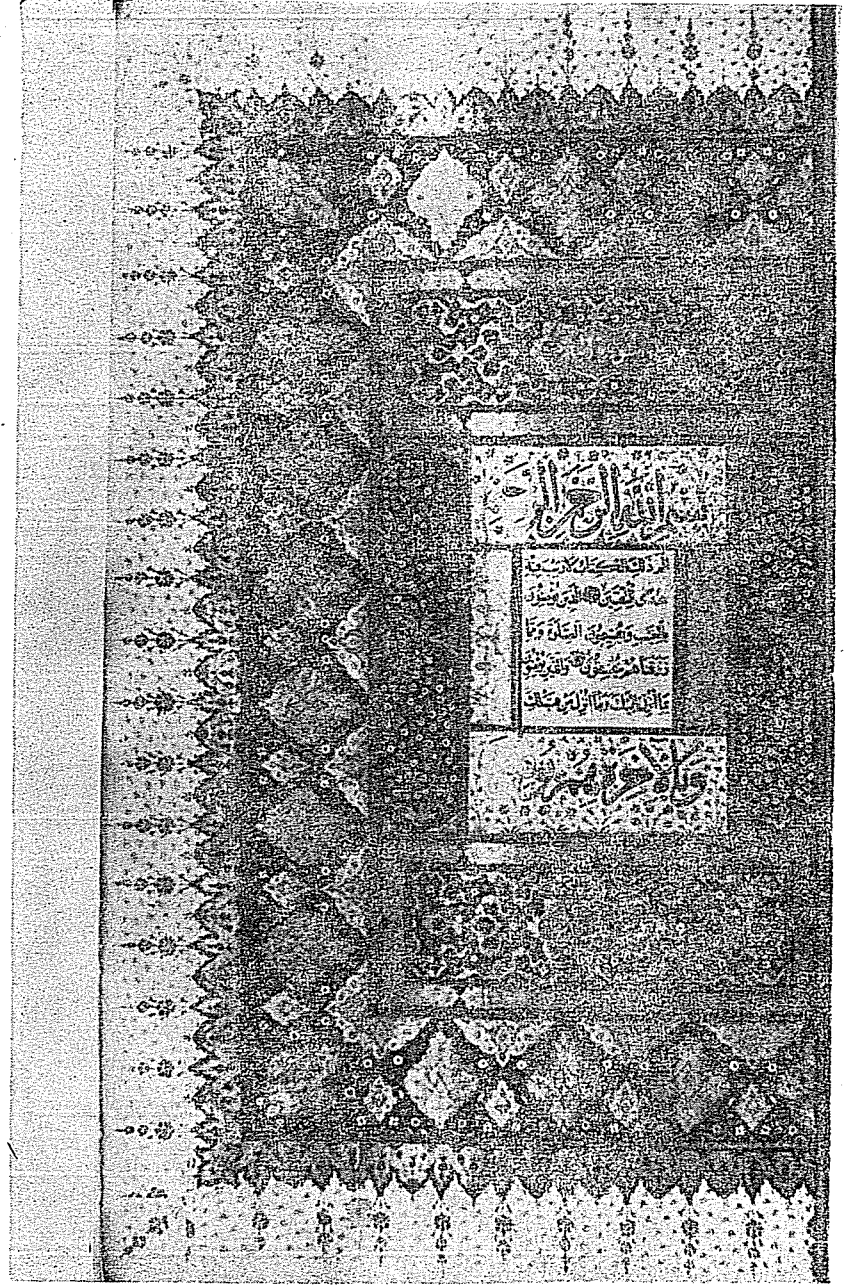 بسم الله الرحمن الر
الم ذلك الكتاب لا ريب فيه
هدى للمتقين الذين يؤمنون
بالغيب ويقيمون الصلوة ومما
رزقناهم ينفقون والذين يؤمنون
بما أنزل إليك وما أنزل من قبلك
وبالآخرة هم